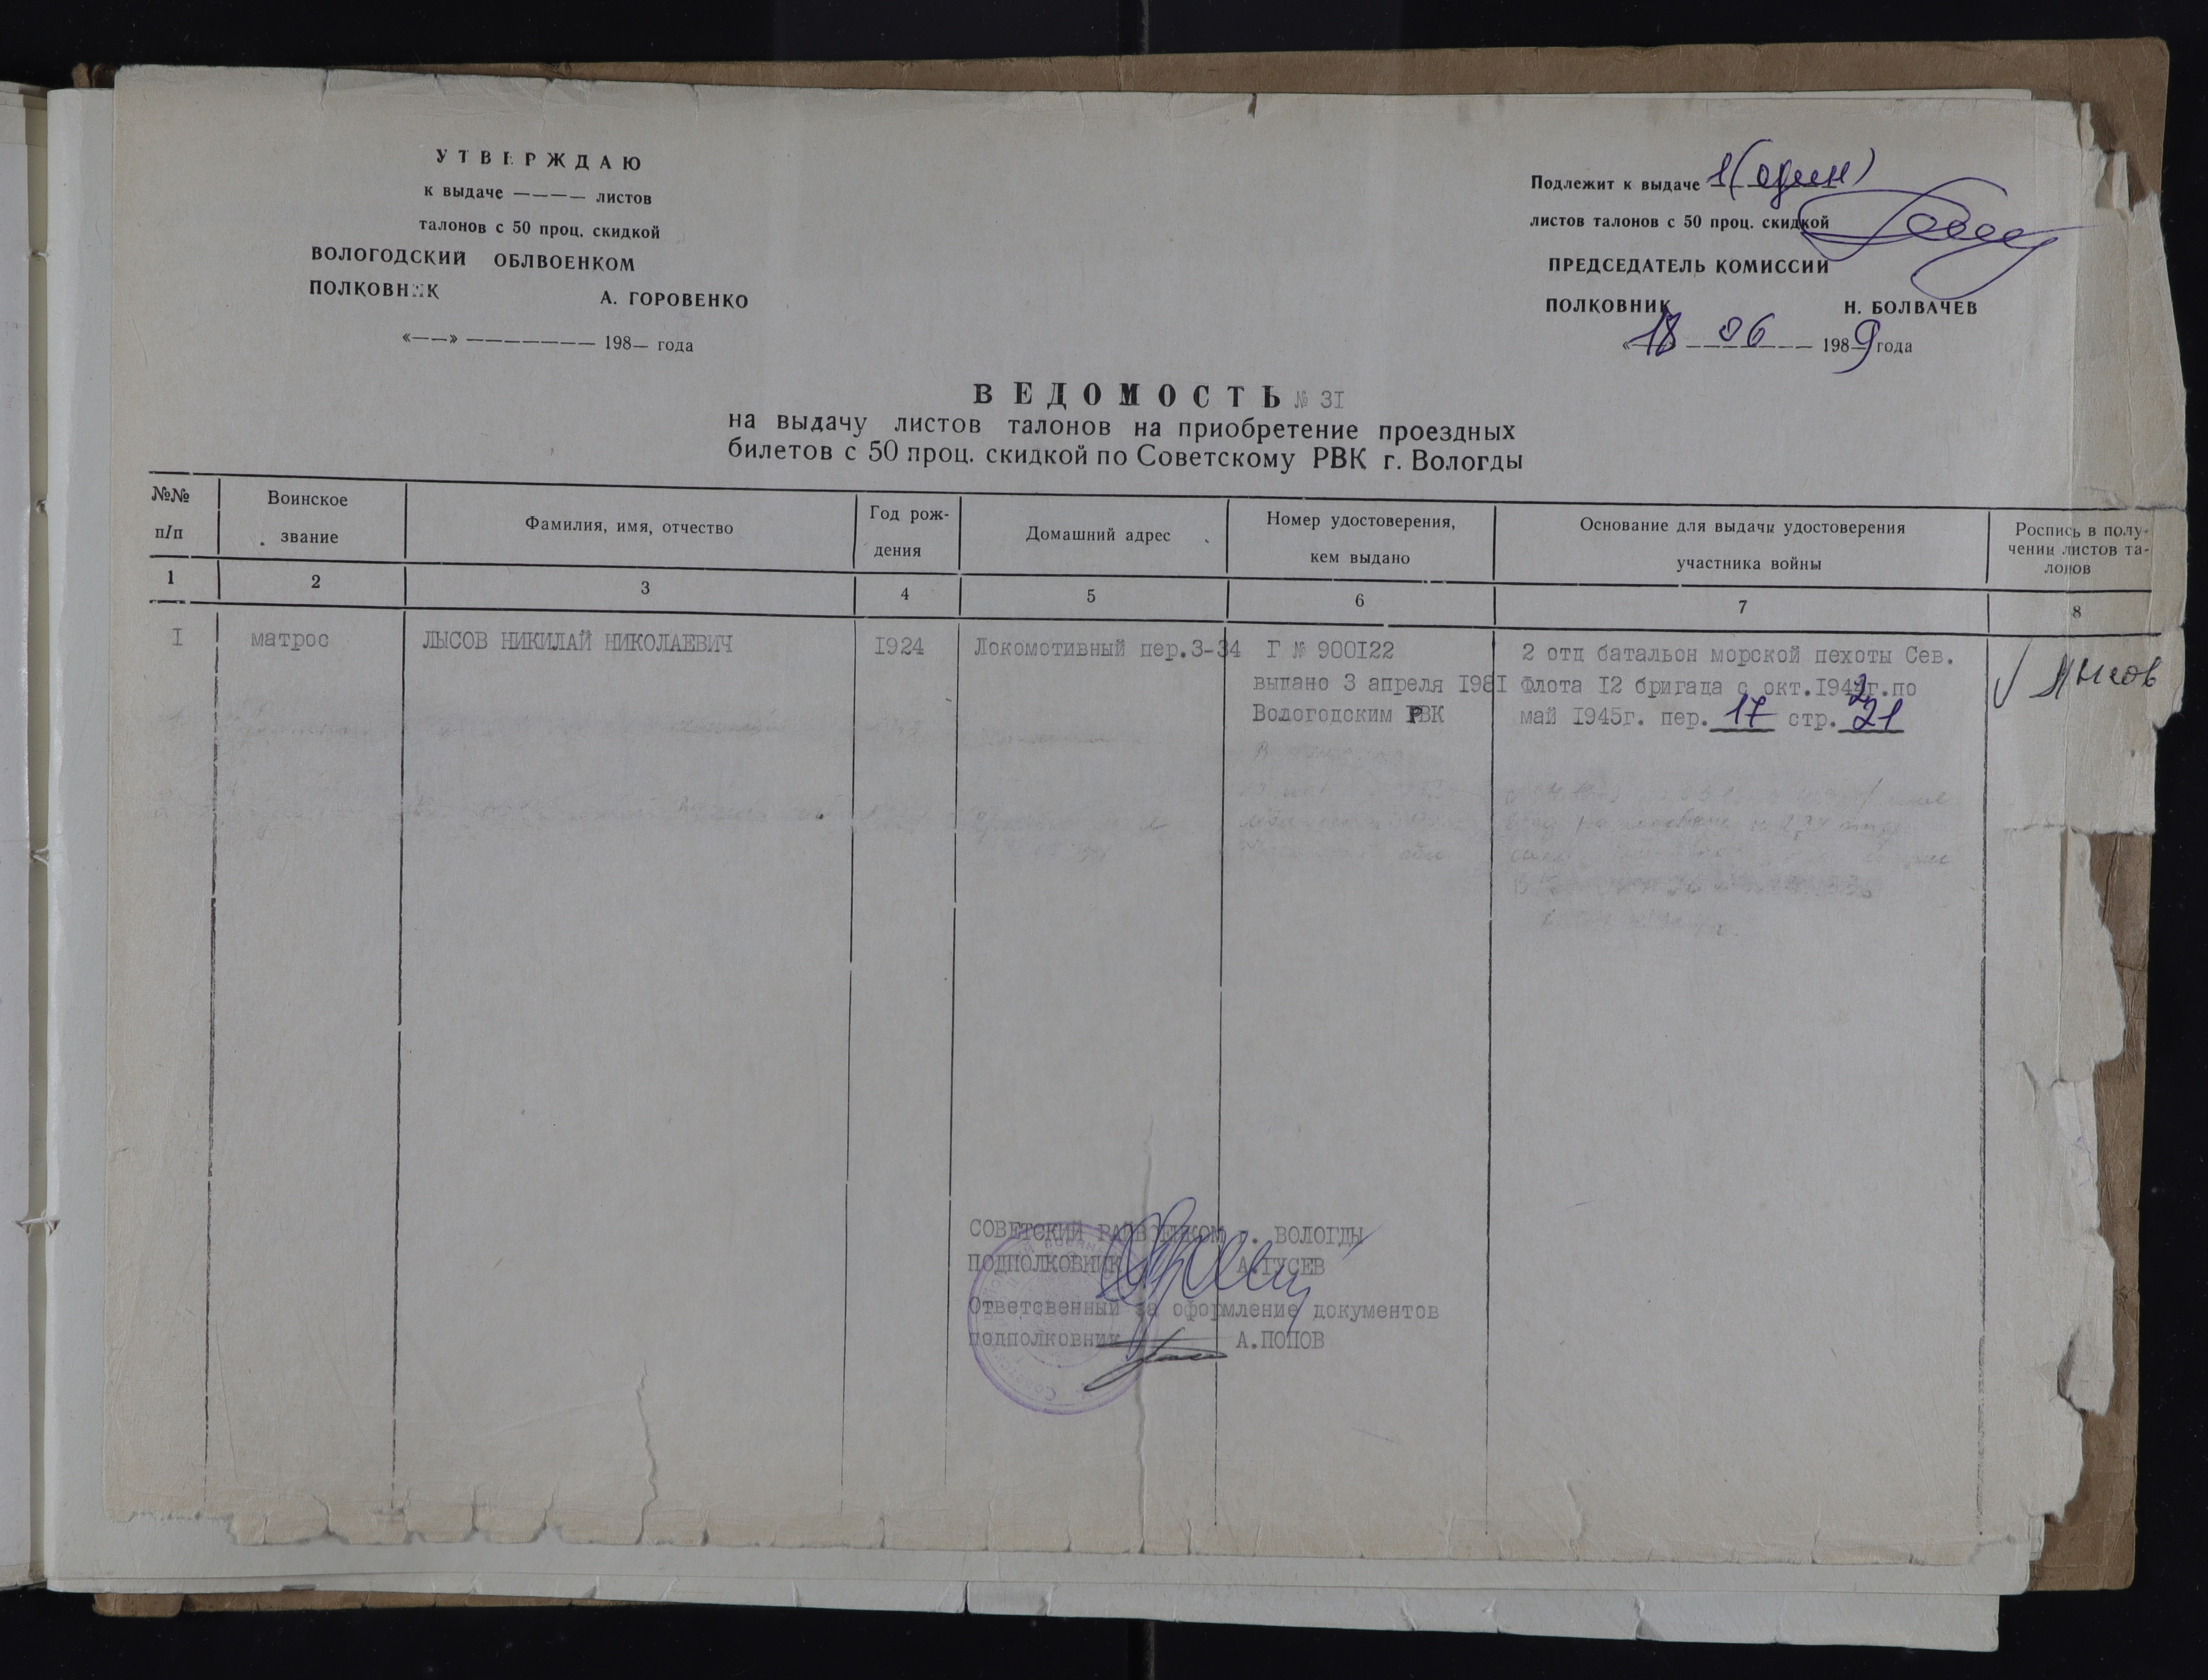 УТВЕРЖДАЮ
к выдаче ———— листов
талонов с 50 проц. скидкой
ВОЛОГОДСКИЙ ОБЛВОЕНКОМ
ПОЛКОВНИК А. ГОРОВЕНКО
«——» ——————— 198— года
Подлежит к выдаче 1 (один)
листов талонов с 50 проц. скидкой
ПРЕДСЕДАТЕЛЬ КОМИССИИ
ПОЛКОВНИК Н. БОЛВАЧЕВ
«18» 06 1989 года
ВЕДОМОСТЬ № 31
на выдачу листов талонов на приобретение проездных
билетов с 50 проц. скидкой по Советскому РВК г. Вологды
№№ п/п
Воинское звание
Фамилия, имя, отчество
Год рож-
дения
Домашний адрес
Номер удостоверения,
кем выдано
Основание для выдачи удостоверения
участника войны
Роспись в полу-
чении листов та-
лонов
1 2 3 4 5 6 7 8
I матрос ЛЫСОВ НИКИЛАЙ НИКОЛАЕВИЧ 1924 Локомотивный пер.3-34 Г № 900122 2 отд батальон морской пехоты Сев.
выдано 3 апреля 1981 Флота 12 бригада с окт.1942г.по
Вологодским РВК май 1945г. пер. 17 стр. 21
Лысов
СОВЕТСКИЙ РАЙВОЕНКОМ г. ВОЛОГДЫ
ПОДПОЛКОВНИК А.ГУСЕВ
Ответсвенный за оформление документов
подполковник А.ПОПОВ